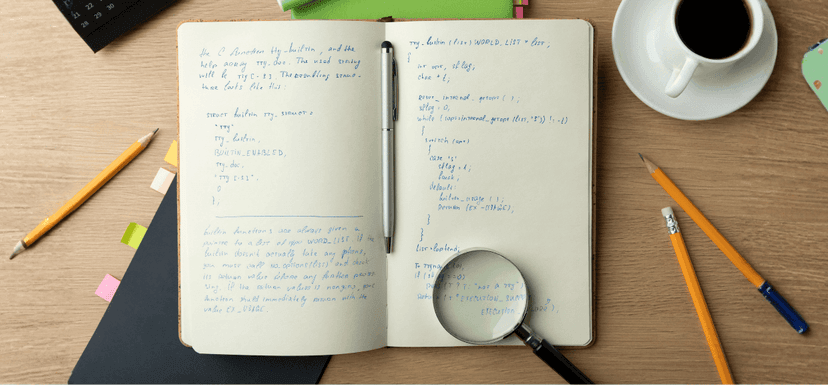 the C function tty_builtin, and the
help array tty_doc. The used string
will be tty [-s]. The resulting struc-
ture looks like this:
struct builtin tty_struct =
"tty"
tty_builtin,
BUILTIN_ENABLED,
tty_doc,
"tty [-s]",
0
};
builtin functions are always given a
pointer to a list of type WORD_LIST. If the
builtin doesn't actually take any options,
you must call no_options(list) and check
its return value before any further proces-
sing. If the return value is nonzero, your
function should immediately return with the
value EX_USAGE.
tty_builtin (list) WORD_LIST * list;
{
int opt, sflag;
char * t;
reset_internal_getopt ( );
sflag = 0;
while ((opt = internal_getopt (list, "s")) != -1)
{
switch (opt)
{
case 's'
sflag = 1;
break;
default:
builtin_usage ( );
return (EX_USAGE);
}
}
list = loptend;
t = ttyname
if (
"not a tty")
21 22
28 29
31